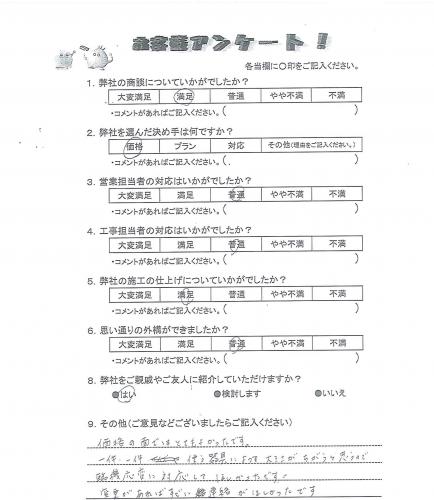 お客様アンケート!
各当欄に〇印をご記入ください。
1. 弊社の商談についていかがでしたか?
大変満足 満足 普通 やや不満 不満
・コメントがあればご記入ください。( )
2. 弊社を選んだ決め手は何ですか?
価格 プラン 対応 その他(理由をご記入ください。)
・コメントがあればご記入ください。( )
3. 営業担当者の対応はいかがでしたか?
大変満足 満足 普通 やや不満 不満
・コメントがあればご記入ください。( )
4. 工事担当者の対応はいかがでしたか?
大変満足 満足 普通 やや不満 不満
・コメントがあればご記入ください。( )
5. 弊社の施工の仕上げについていかがでしたか?
大変満足 満足 普通 やや不満 不満
・コメントがあればご記入ください。( )
6. 思い通りの外構ができましたか?
大変満足 満足 普通 やや不満 不満
・コメントがあればご記入ください。( )
8. 弊社をご親戚やご友人に紹介していただけますか?
●はい ●検討します ●いいえ
9. その他(ご意見などございましたらご記入ください)
価格の面ではとてもよかったです。
一件一件 使う器具によって大きさがちがうと思うので
臨機応変に対応してほしかったです。
変更があればすぐに連絡がほしかったです